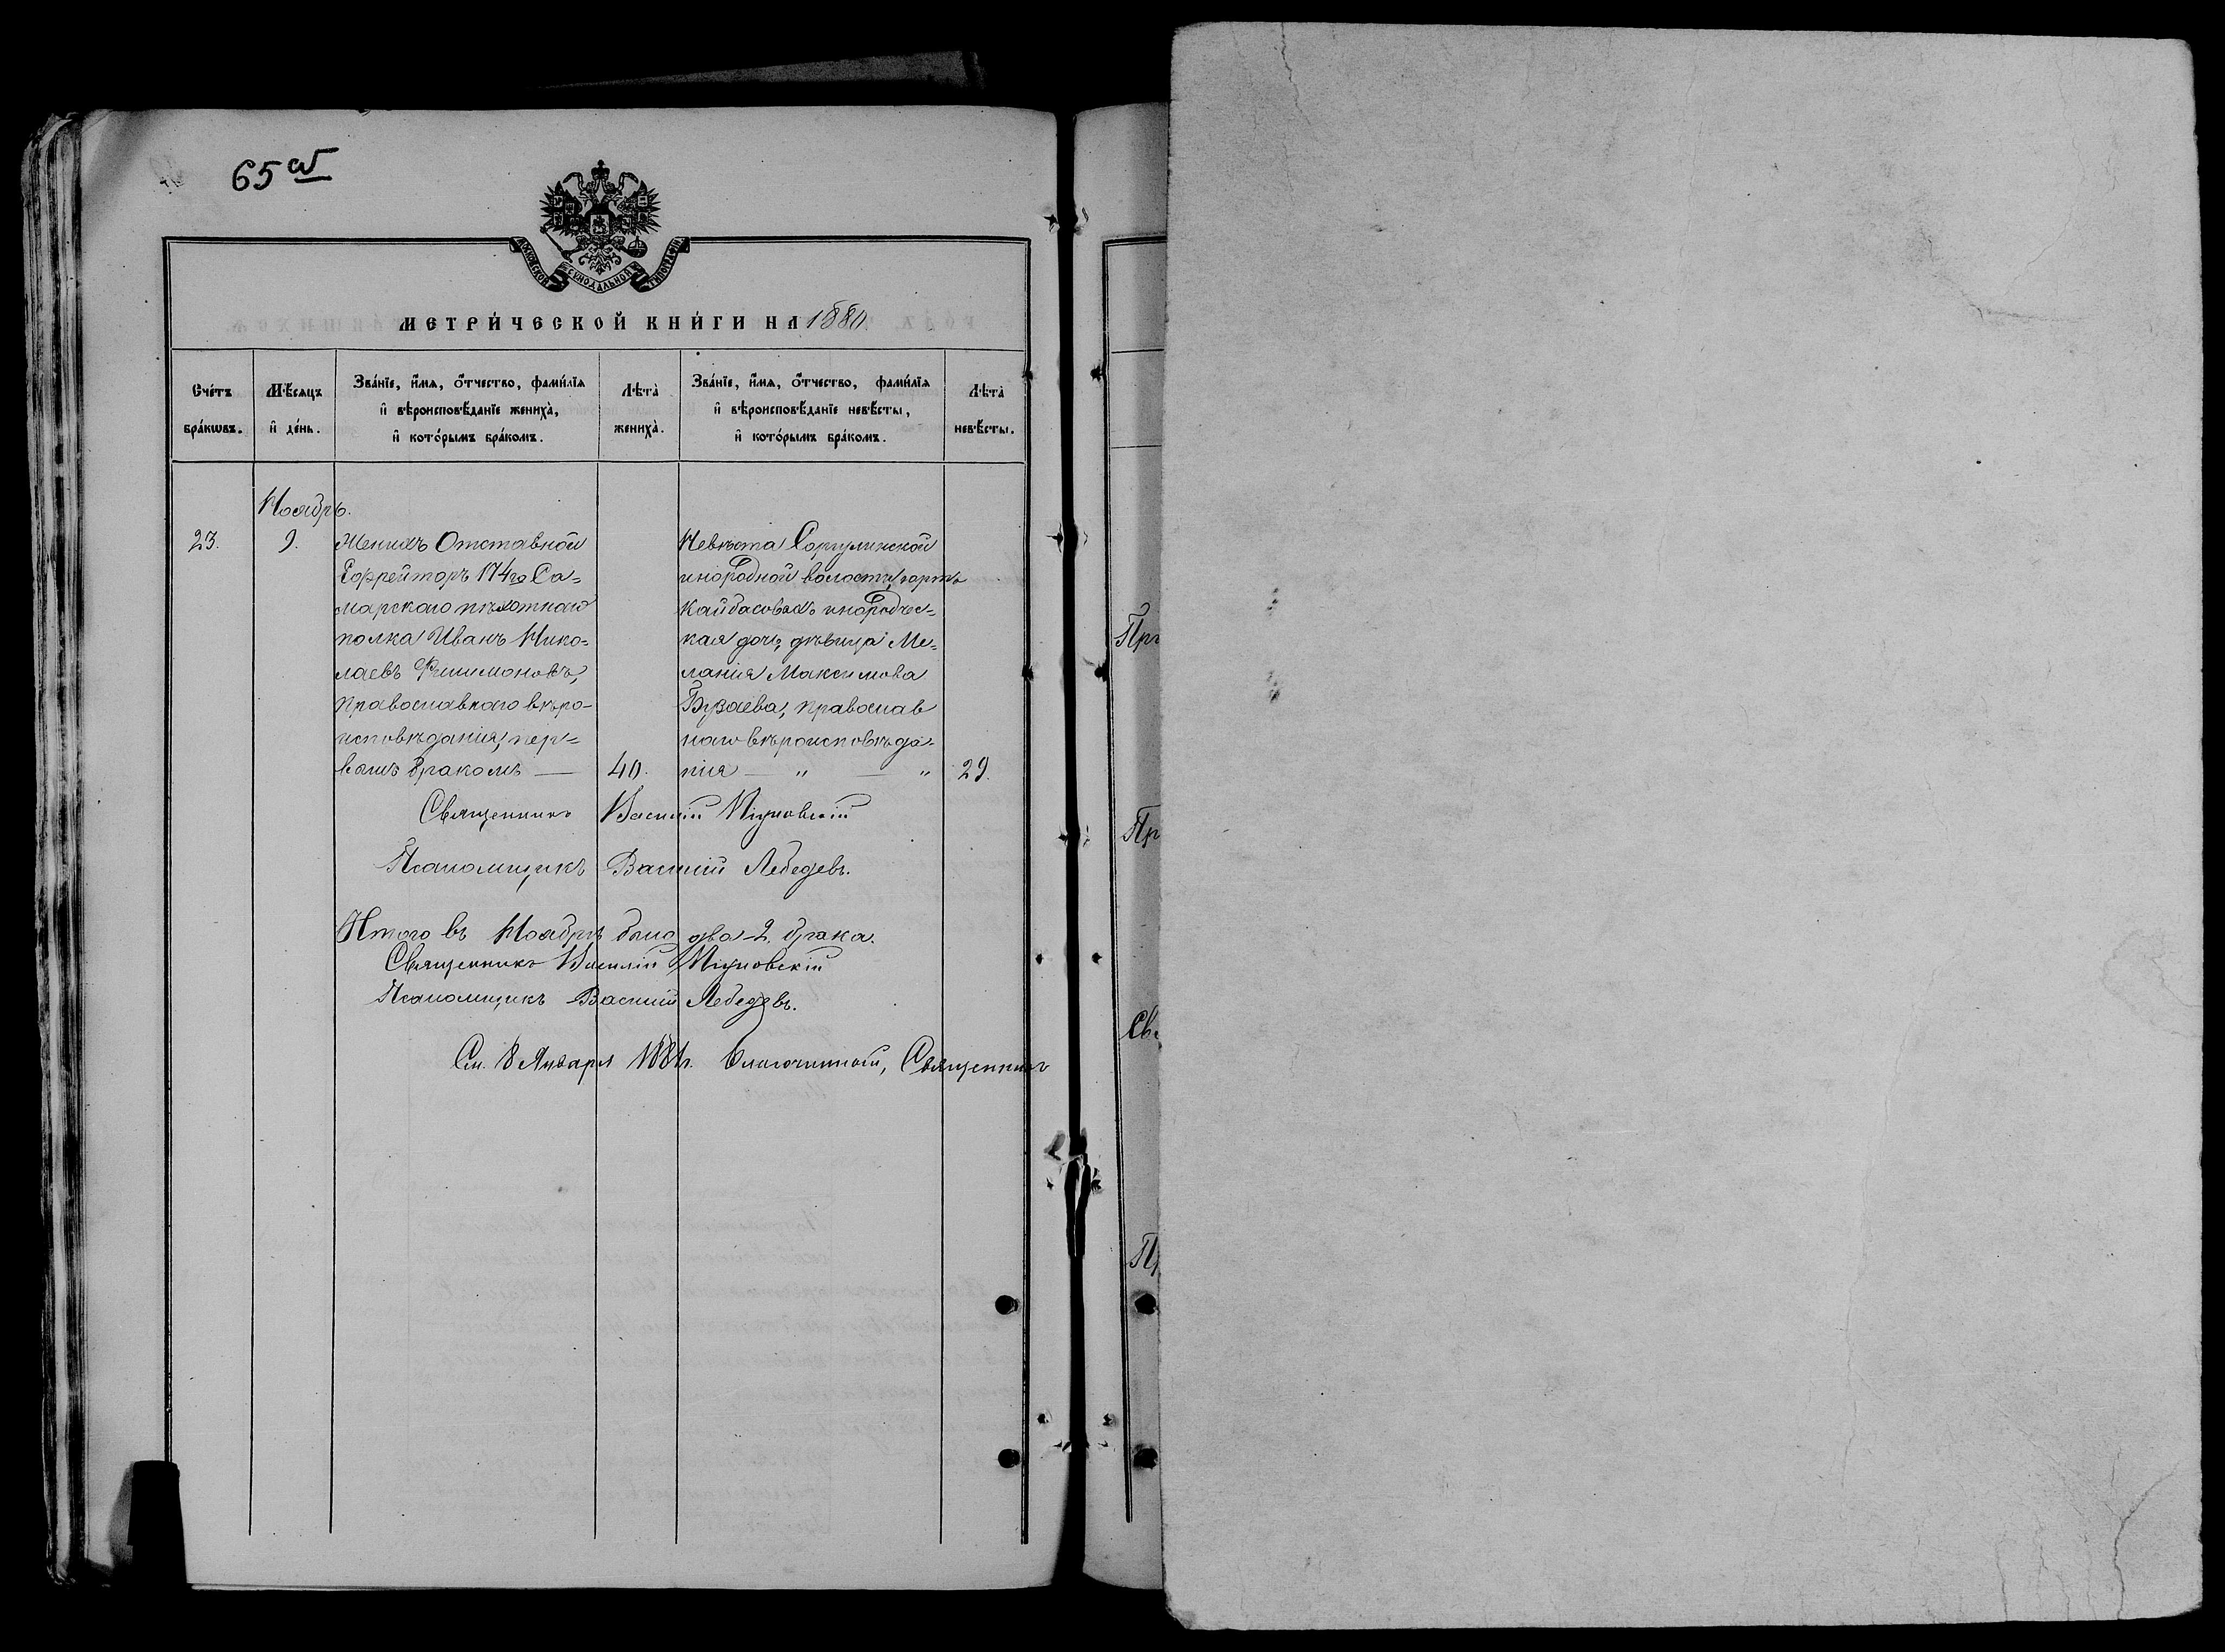 65 об
МОСКОВСКОЙ СѴНОДАЛЬНОЙ ТИПОГРАФІИ
МЕТРИ́ЧЕСКОЙ КНИ́ГИ НА 1880
Сче́тъ бра́кѡвъ.
Мѣ́сяцъ и҆ де́нь.
Зва́нїе, и҆́мѧ, ѻ҆́тчество, фами́лїѧ
и҆ вѣроисповѣ́данїе жениха̀,
и҆ кото́рымъ бра́комъ.
Лѣта̀ жениха̀.
Зва́нїе, и҆́мѧ, ѻ҆́тчество, фами́лїѧ
и҆ вѣроисповѣ́данїе невѣ́сты,
и҆ кото́рымъ бра́комъ.
Лѣта̀ невѣ́сты.
Ноябрь.
23.
9.
Женихъ Отставной
Ефрейторъ 174го Са=
марскаго пѣхотнаго
полка Иванъ Нико=
лаевъ Филимоновъ,
православнаго вѣро-
исповѣданія, пер=
вымъ бракомъ —
40.
Невѣста
инородной волости, юртъ
Кайбасовыхъ инородчес=
кая дочь, дѣвица Ме=
ланія Максимова
православ
наго вѣроисповѣда=
нія — „ — „
29.
Священникъ Василій
Псаломщикъ Василій Лебедевъ.
Итого въ Ноябрѣ было два-2. брака.
Священникъ Василій
Псаломщикъ Василій Лебедевъ.
См. 8 Января 1881г. Благочинный, Священникъ
Пр
Пр
Св
П